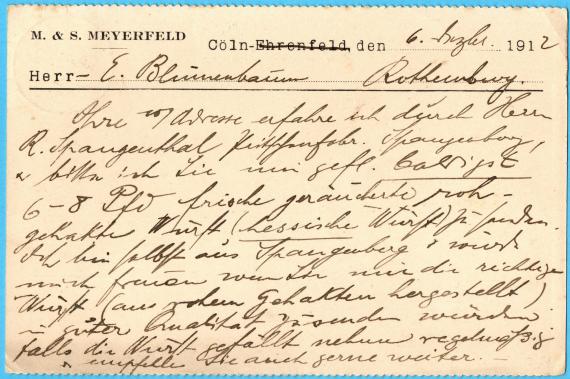 M. & S. MEYERFELD
Cöln-Ehrenfeld, den 6. Dezbr. 1912
Herr E. Blumenbaum Rothenburg.
Ihre w/ Adresse erfahre ich durch Herrn
R. Spangenthal Spangenberg,
& bitte ich Sie mir gefl. baldigst
6-8 Pfd frische geräucherte roh-
gehakte Wurst (hessische Wurst) zu senden.
Ich bin selbst aus Spangenberg & würde
mich freuen wenn Sie mir die richtige
Wurst (aus rohem Gehakten hergestellt)
in guter Qualität zusenden würden
falls die Wurst gefällt nehme regelmäßig
& empfehle Sie auch gerne weiter.